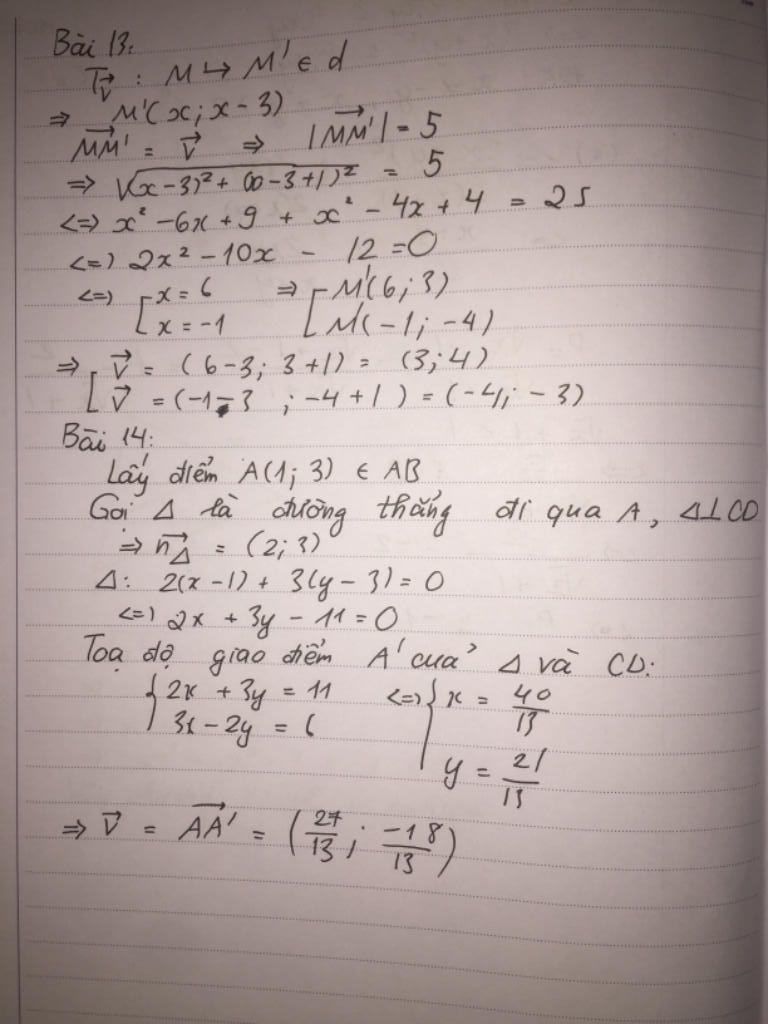 Bài 13:
T_v⃗ : M ↦ M' ∈ d
⇒ M'(x; x - 3)
MM'⃗ = v⃗ ⇒ |MM'⃗| = 5
⇒ √((x - 3)² + (x - 3 + 1)²) = 5
<=> x² - 6x + 9 + x² - 4x + 4 = 25
<=> 2x² - 10x - 12 = 0
<=> [ x = 6 ⇒ [ M'(6; 3)
x = -1 M'(-1; -4)
⇒ [ v⃗ = (6 - 3; 3 + 1) = (3; 4)
v⃗ = (-1 - 3 ; -4 + 1) = (-4; -3)
Bài 14:
Lấy điểm A(1; 3) ∈ AB
Gọi Δ là đường thẳng đi qua A, Δ⊥CD
⇒ n_Δ⃗ = (2; 3)
Δ: 2(x - 1) + 3(y - 3) = 0
<=> 2x + 3y - 11 = 0
Toạ độ giao điểm A' của Δ và CD:
{ 2x + 3y = 11 <=> { x = 40/13
3x - 2y = 6
y = 21/13
⇒ v⃗ = AA'⃗ = (27/13; -18/13)